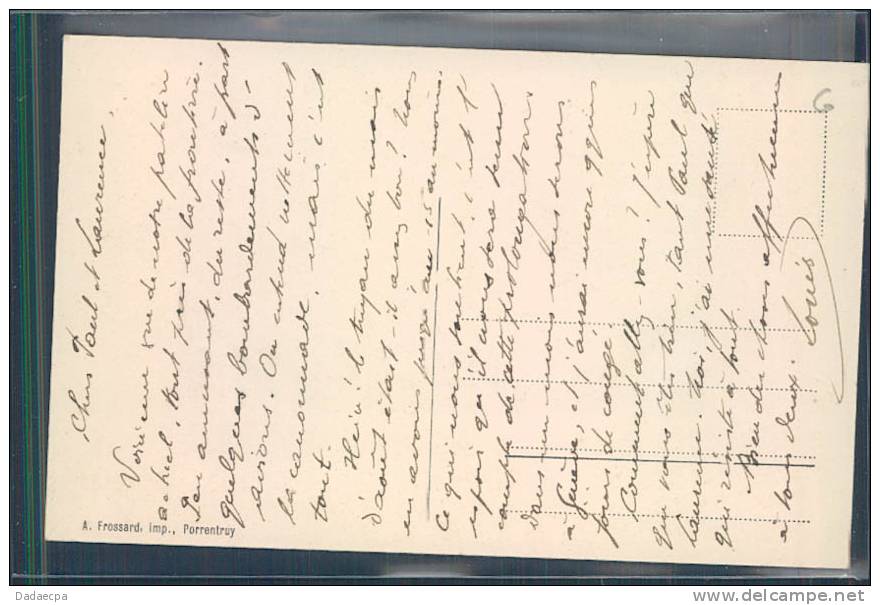 Chers Paul et Laurence.
Voici une vue de notre patelin
actuel, tout près de la frontière.
Peu amusant, du reste, à part
quelques bombardements d'-
avions. On entend nettement
la canonnade, mais c'est
tout.
Hein! le tuyau du mois
d'août était-il assez bon? Nous
en avons jusqu'au 15 au moins.
Ce qui nous soutient, c'est l'
espoir qu'il nous sera tenu
compte de cette prolongation.
Dans un mois nous serons
à Genève, et j'aurai encore qques
jours de congé.
Comment allez-vous? J'espère
que vous êtes bien, tant Paul que
Laurence. Moi, j'ai une santé
qui résiste à tout.
Bien des choses affectueuses
à tous deux. Louis
6
A. Frossard, imp., Porrentruy
Dadaecpa
www.delcampe.net